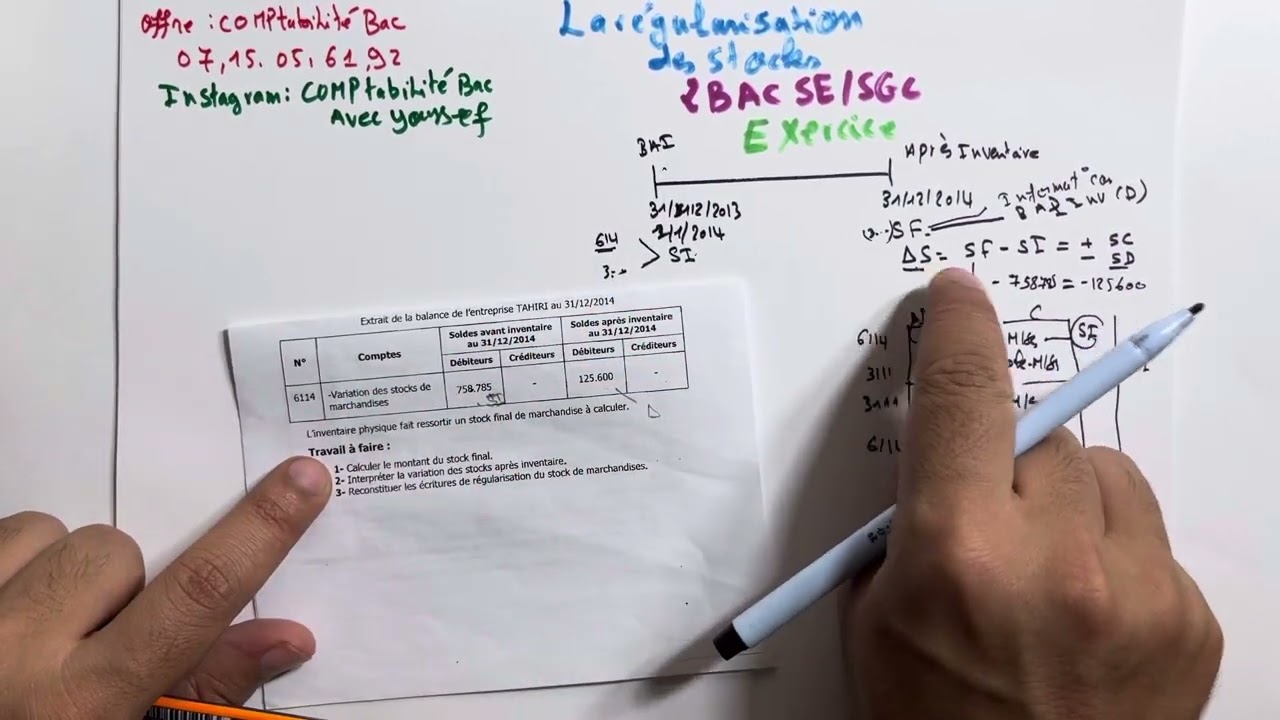 Offre : COMPtabilité Bac
07,15.05.61,92
Instagram: COMPtabilité Bac
Avec youssef
La régularisation
des stocks
2BAC SE/SGC
Exercice
BAI
Après Inventaire
31/12/2013
1/1/2014
31/12/2014
614
SI
SF=
ΔS= SF - SI = + SC
- SD
- 758.785 = -125600
C
6114
SI
3111
3111
Extrait de la balance de l'entreprise TAHIRI au 31/12/2014
N° Comptes Soldes avant inventaire au 31/12/2014 Soldes après inventaire au 31/12/2014
Débiteurs Créditeurs Débiteurs Créditeurs
6114 -Variation des stocks de marchandises 758.785 - 125.600 -
SI
D
L'inventaire physique fait ressortir un stock final de marchandise à calculer.
Travail à faire :
1- Calculer le montant du stock final.
2- Interpréter la variation des stocks après inventaire.
3- Reconstituer les écritures de régularisation du stock de marchandises.